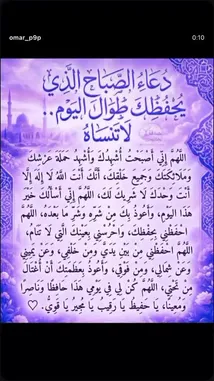 omar_p9p
0:10
دُعَاءُ الصَّبَاحِ الَّذِي
يَحْفَظُكَ طُوَالَ الْيَوْمِ..
لَا تَنْسَاهُ
اللَّهُمَّ إِنِّي أَصْبَحْتُ أُشْهِدُكَ وَأُشْهِدُ حَمَلَةَ عَرْشِكَ
وَمَلَائِكَتَكَ وَجَمِيعَ خَلْقِكَ، أَنَّكَ أَنْتَ اللَّهُ لَا إِلَهَ إِلَّا
أَنْتَ وَحْدَكَ لَا شَرِيكَ لَكَ، اللَّهُمَّ إِنِّي أَسْأَلُكَ خَيْرَ
هَذَا الْيَوْمِ، وَأَعُوذُ بِكَ مِنْ شَرِّهِ وَشَرِّ مَا بَعْدَهُ، اللَّهُمَّ
احْفَظْنِي بِحِفْظِكَ، وَاحْرُسْنِي بِعَيْنِكَ الَّتِي لَا تَنَامُ،
اللَّهُمَّ احْفَظْنِي مِنْ بَيْنِ يَدَيَّ وَمِنْ خَلْفِي، وَعَنْ يَمِينِي
وَعَنْ شِمَالِي، وَمِنْ فَوْقِي، وَأَعُوذُ بِعَظَمَتِكَ أَنْ أُغْتَالَ
مِنْ تَحْتِي، اللَّهُمَّ كُنْ لِي فِي يَوْمِي هَذَا حَافِظًا وَنَاصِرًا
وَمُعِينًا، يَا حَفِيظُ يَا رَقِيبُ يَا مُجِيرُ يَا قَوِيُّ. ♡